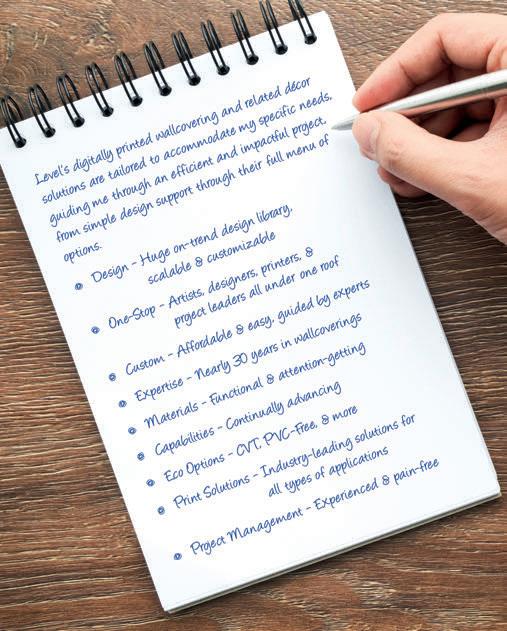 Level's digitally printed wallcovering and related décor
solutions are tailored to accommodate my specific needs,
guiding me through an efficient and impactful project.
from simple design support through their full menu of
options.
Design - Huge on-trend design library,
scalable & customizable
One-Stop - Artists, designers, printers, &
project leaders all under one roof
Custom - Affordable & easy, guided by experts
Expertise - Nearly 30 years in wallcoverings
Materials - Functional & attention-getting
Capabilities - Continually advancing
Eco Options - CVT, PVC-Free, & more
Print Solutions - Industry-leading solutions for
all types of applications
Project Management - Experienced & pain-free